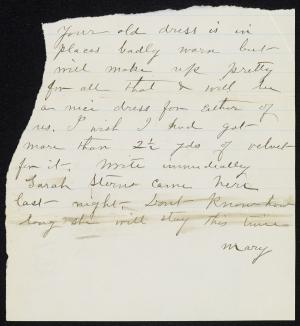 Your old dress is in
places badly worn but
will make up pretty
for all that & will be
a nice dress for either of
us. I wish I had got
more than 2½ yds of velvet
for it. Write immediately
Sarah Sterns came here
last night. Dont know how
long she will stay this time
Mary